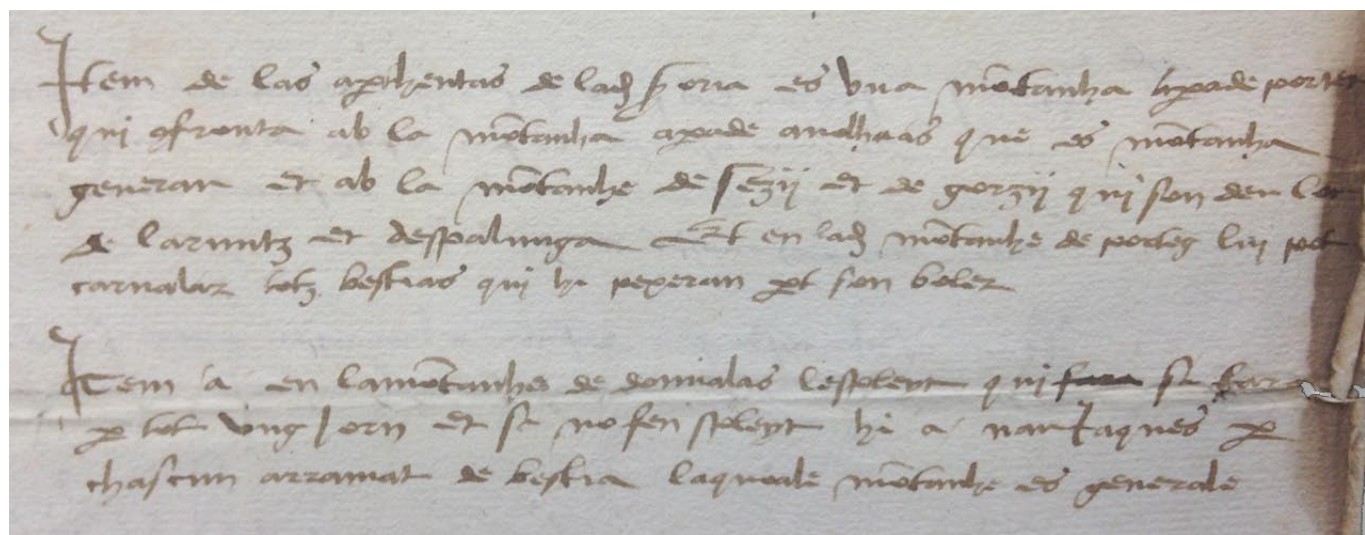 Item de las apthentas de lad s
oria es una mōtanha apade porteg
qui 9fronta ab la mōtanha apade anolhaas que es mōtanha
generau et ab la mōtanhe de sezij et de gorzij qui son deu loc
de laruntz et despalunga Et en lad mōtanhe de porteg lhi pot
carnalar totz bestias qui hi pexeran pt son boler
Item a en lamōtanhe de donnalas lespleyt qui se far
p tot ung jorn et si no fen spleyt hi a nau jaques p
chascun arramat de bestia laquoale mōtanhe es generale